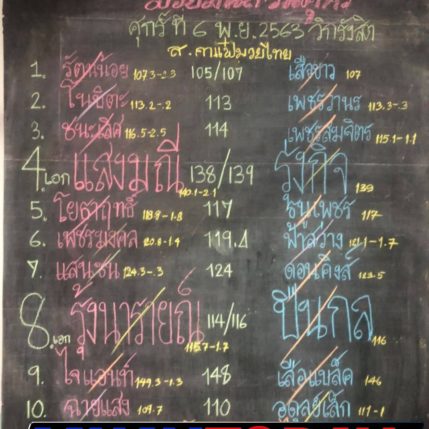 ศุกร์ ที่ 6 พ.ย. 2563 วิกรังสิต
ส. คาเฟ่มวยไทย
1. รัตน์น้อย 107.3-2.3 105/107 เสือขาว 107
2. โนบิตะ 113.2-.2 113 เพชรวานร 113.3-.3
3. ชนะเลิศ 116.5-2.5 114 เพชรสมจิตร 115.1-1.1
4.เอก แสงมณี 140.1-2.1 138/139 รุ่งกิจ 139
5. โยธาฤทธิ์ 118.8-1.8 117 ธนูเพชร 117
6. เพชรมงคล 120.8-1.4 119.4 ฟ้าสว่าง 121.1-1.7
7. แสนซน 124.3-.3 124 ดอนคิงส์ 123.5
8.เอก รุ้งนารายณ์ 115.7-1.7 114/116 ปืนกล 116
9. ไจแอนท์ 149.3-1.3 148 เสือแบล็ค 146
10. ฉายแสง 109.7 110 111-1